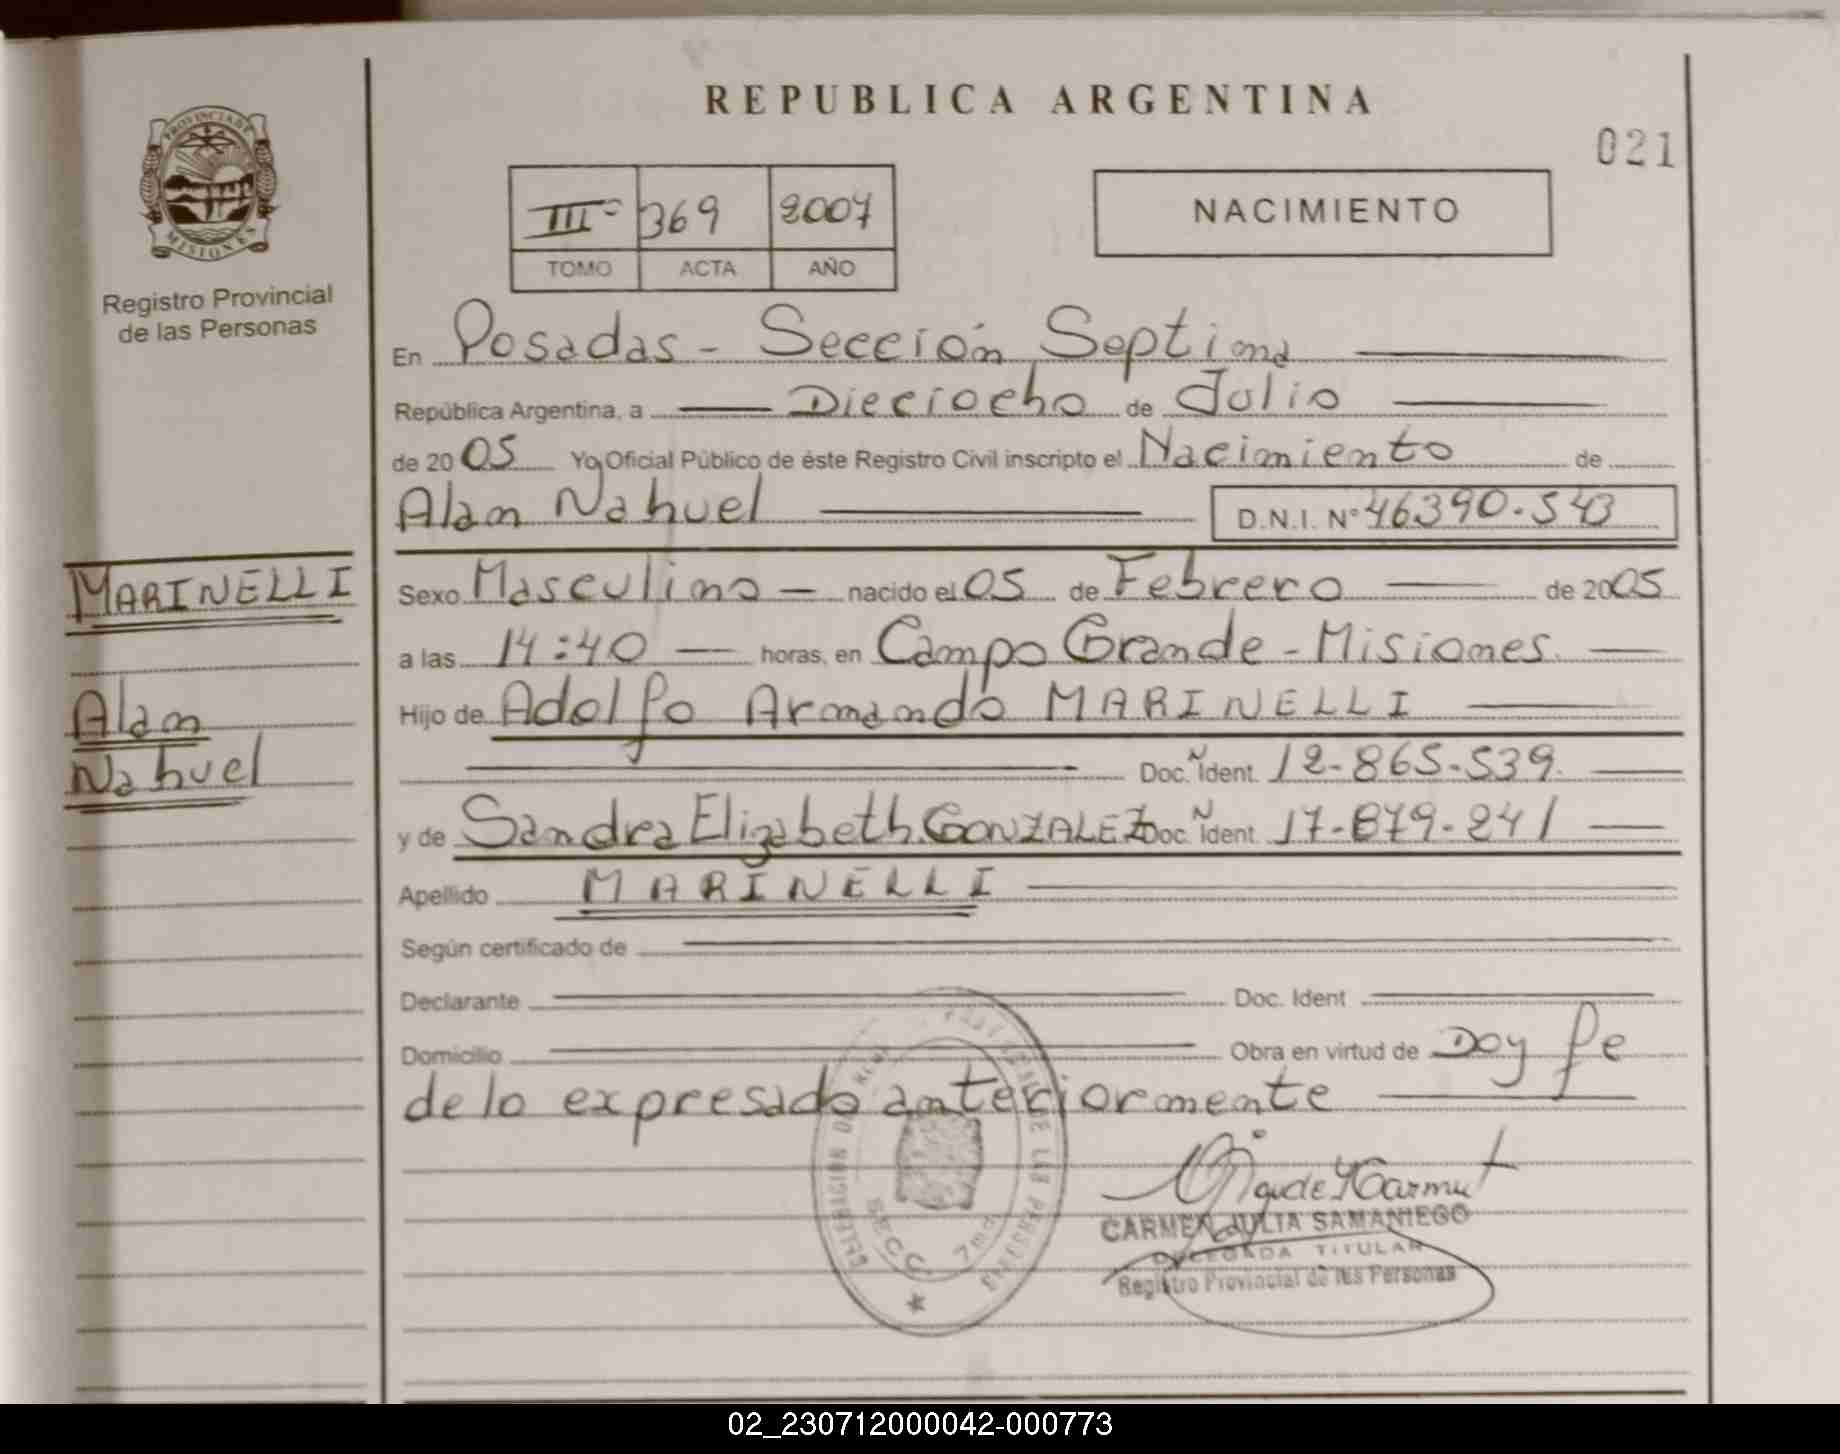 REPUBLICA ARGENTINA
021
PROVINCIA DE
MISIONES
Registro Provincial
de las Personas
IIIº 369 2007
TOMO ACTA AÑO
NACIMIENTO
En Posadas - Sección Septima
República Argentina, a Dieciocho de Julio
de 2005 Yo, Oficial Público de éste Registro Civil inscripto el Nacimiento de
Alan Nahuel D.N.I. Nº 46390.543
MARINELLI
Alan
Nahuel
Sexo Masculino nacido el 05 de Febrero de 2005
a las 14:40 horas, en Campo Grande - Misiones
Hijo de Adolfo Armando MARINELLI
Doc. Ñ Ident 12-865-539
y de Sandra Elizabeth GONZALEZ Doc. Ñ Ident 17-879-241
Apellido MARINELLI
Según certificado de
Declarante Doc. Ident
Domicilio Obra en virtud de Doy fe
de lo expresado anteriormente
DE LAS PERSONAS
SECC. 7ma.
CARMEN JULIA SAMANIEGO
DELEGADA TITULAR
Registro Provincial de las Personas
02_230712000042-000773